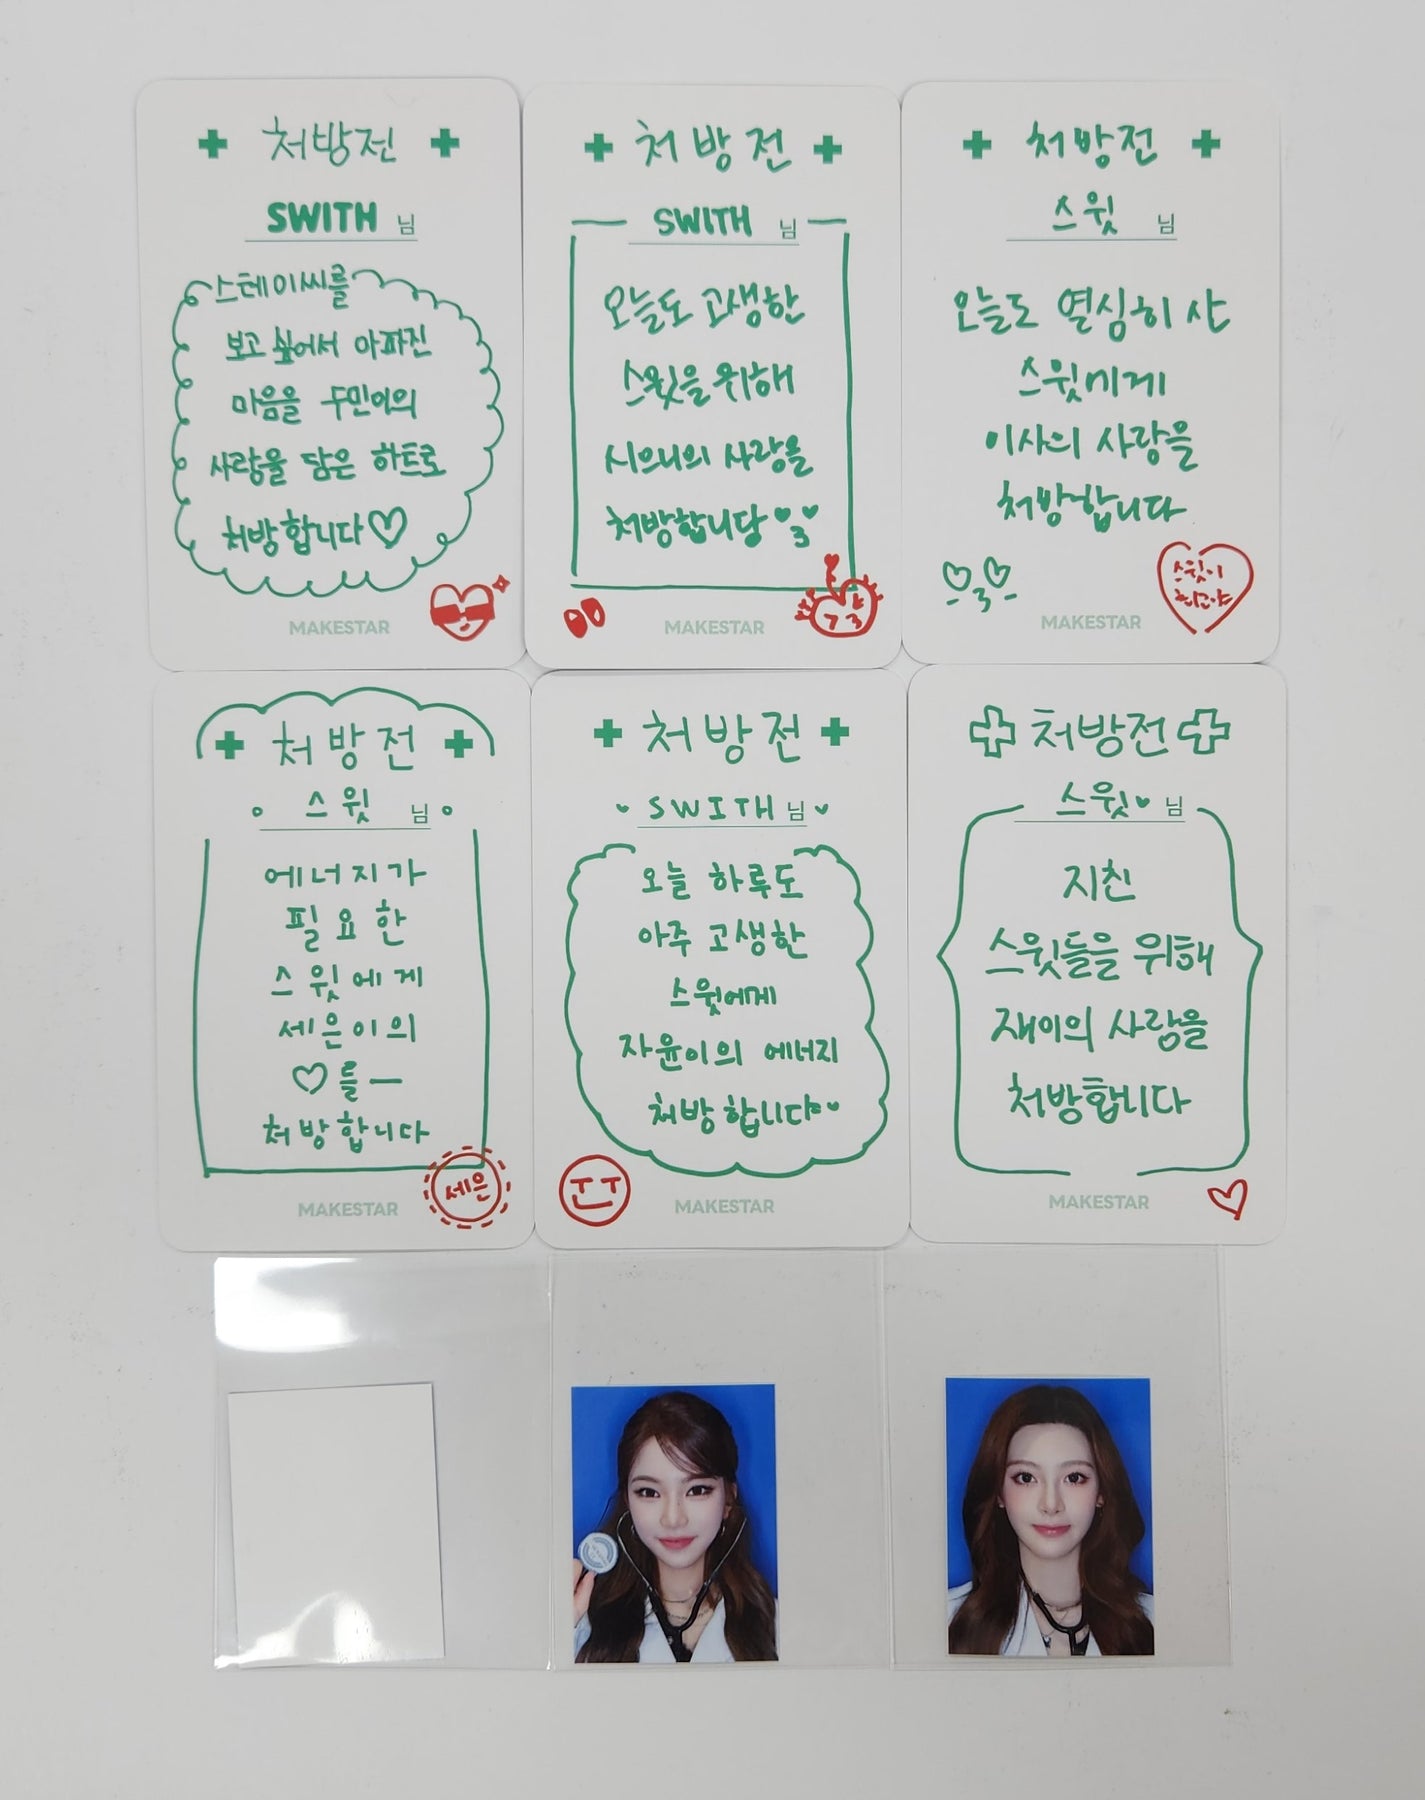 처방전
SWITH 님
스테이씨를
보고 싶어서 아파진
마음을 수민이의
사랑을 담은 하트로
처방합니다♡
MAKESTAR
처방전
SWITH 님
오늘도 고생한
스윗을 위해
시으니의 사랑을
처방합니당
MAKESTAR
처방전
스윗 님
오늘도 열심히 산
스윗에게
이사의 사랑을
처방합니다
스윗이
최고야
MAKESTAR
처방전
스윗 님
에너지가
필요한
스윗에게
세은이의
♡를
처방합니다
세은
MAKESTAR
처방전
SWITH 님
오늘 하루도
아주 고생한
스윗에게
자윤이의 에너지
처방합니다
MAKESTAR
처방전
스윗♥ 님
지친
스윗들을 위해
재이의 사랑을
처방합니다
MAKESTAR